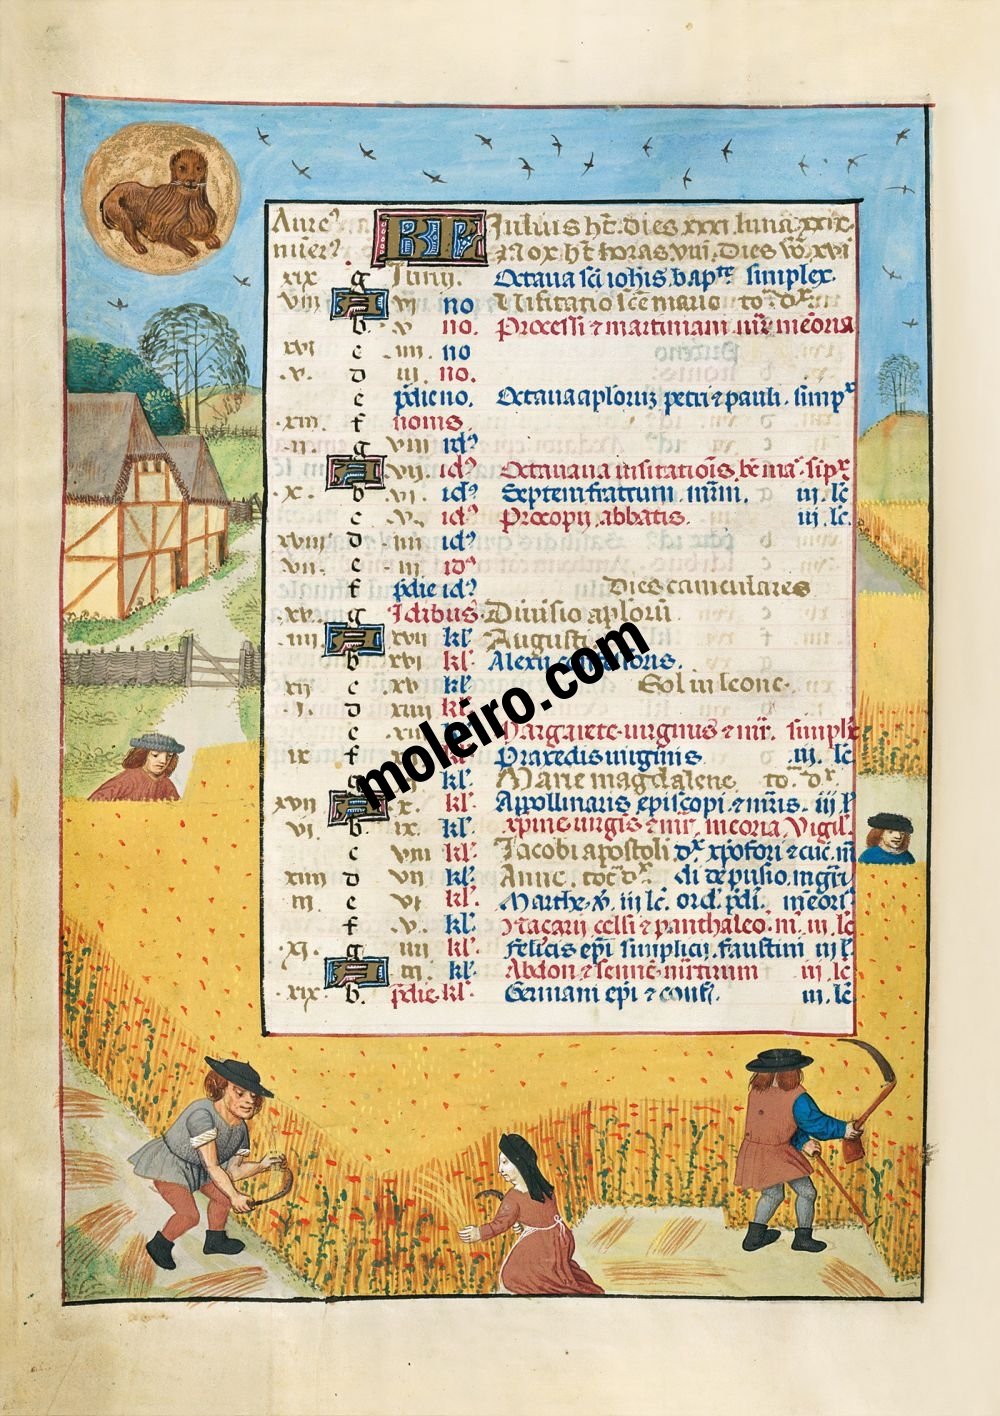 Aure⁹ KL Julius ht. dies xxxi luna xxix.
nũer⁹. Nox ht horas viii. Dies vo. xvi
xix g Iunij. Octava sci iohis bapte simplex.
viii A vi no Visitatio scē marie to. dx.
b v no. Processi z martiniani mr memoria
xvi c iiii no
v. d iii no.
e pdie no. Octava aplorum petri z pauli. simpx
xiii f nonis.
ii g viii id⁹
A vii id⁹ Octavaua visitatiois be ma. sipx
x. b vi. id⁹ Septem fratrum mrm. iii. lc
c v. id⁹ Procopij abbatis. iii. lc.
xviii d iiii id⁹
vii e iii id⁹
f pdie id⁹ Dies caniculares
xv. g Idibus Divisio aplorū
iiii A xvii kl⁹ Augusti
b xvi kl⁹ Alexii confessoris.
xii c xv kl⁹ Sol in leone.
i. d xiiii kl⁹
e kl⁹ Margarete virginis z mr. simplx
ix f kl⁹ Praxedis virginis iii. lc
g kl⁹ Marie magdalene to. dx.
xvii A x. kl⁹ Appollinaris episcopi z mris. iii l
vi b ix. kl⁹ xpine virgis z mr. meoria. Vigil.
c viii kl⁹ Jacobi apostoli dx xpofori z cuc. m
xiiii d vii kl⁹ Anne. tot. dx.
iii e vi kl⁹ Marthe v. iii lc. ord. pdi. meori
f v. kl⁹ Nazarij celsi z panthaleo. m. iii. lc
xi. g iiii kl⁹ Felicis epi simplicij. faustini iii l.
A iii. kl⁹ Abdon z sennē mrtirum iii. lc
xix b. pdie kl⁹ Germani epi z conf. iii. lc
moleiro.com